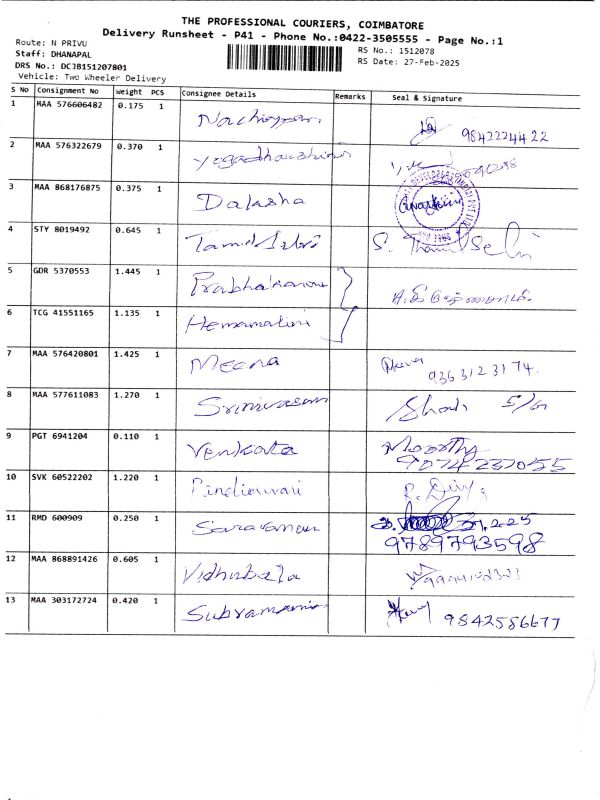 THE PROFESSIONAL COURIERS, COIMBATORE
Delivery Runsheet - P41 - Phone No.:0422-3505555 - Page No.:1
Route: N PRIVU
RS No.: 1512078
Staff: DHANAPAL
RS Date: 27-Feb-2025
DRS No.: DCJB151207801
Vehicle: Two Wheeler Delivery
S No Consignment No Weight PCS Consignee Details Remarks Seal & Signature
1 MAA 576606482 0.175 1 9842224422
2 MAA 576322679 0.370 1
3 MAA 868176875 0.375 1 Dalasha
4 STY 8019492 0.645 1 Tamil Selvi S. Thamil Selvi
5 GDR 5370553 1.445 1 Prabhakaran
6 TCG 41551165 1.135 1 Hemamalini
7 MAA 576420801 1.425 1 Meena 9363123174.
8 MAA 577611083 1.270 1 Srinivasan
9 PGT 6941204 0.110 1 Venkata Moorthy
9074237055
10 SVK 60522202 1.220 1
11 RMD 600909 0.250 1 Saravanan
9789793598
12 MAA 868891426 0.605 1 Vidhubala
13 MAA 303172724 0.420 1 Subramani 9842586677